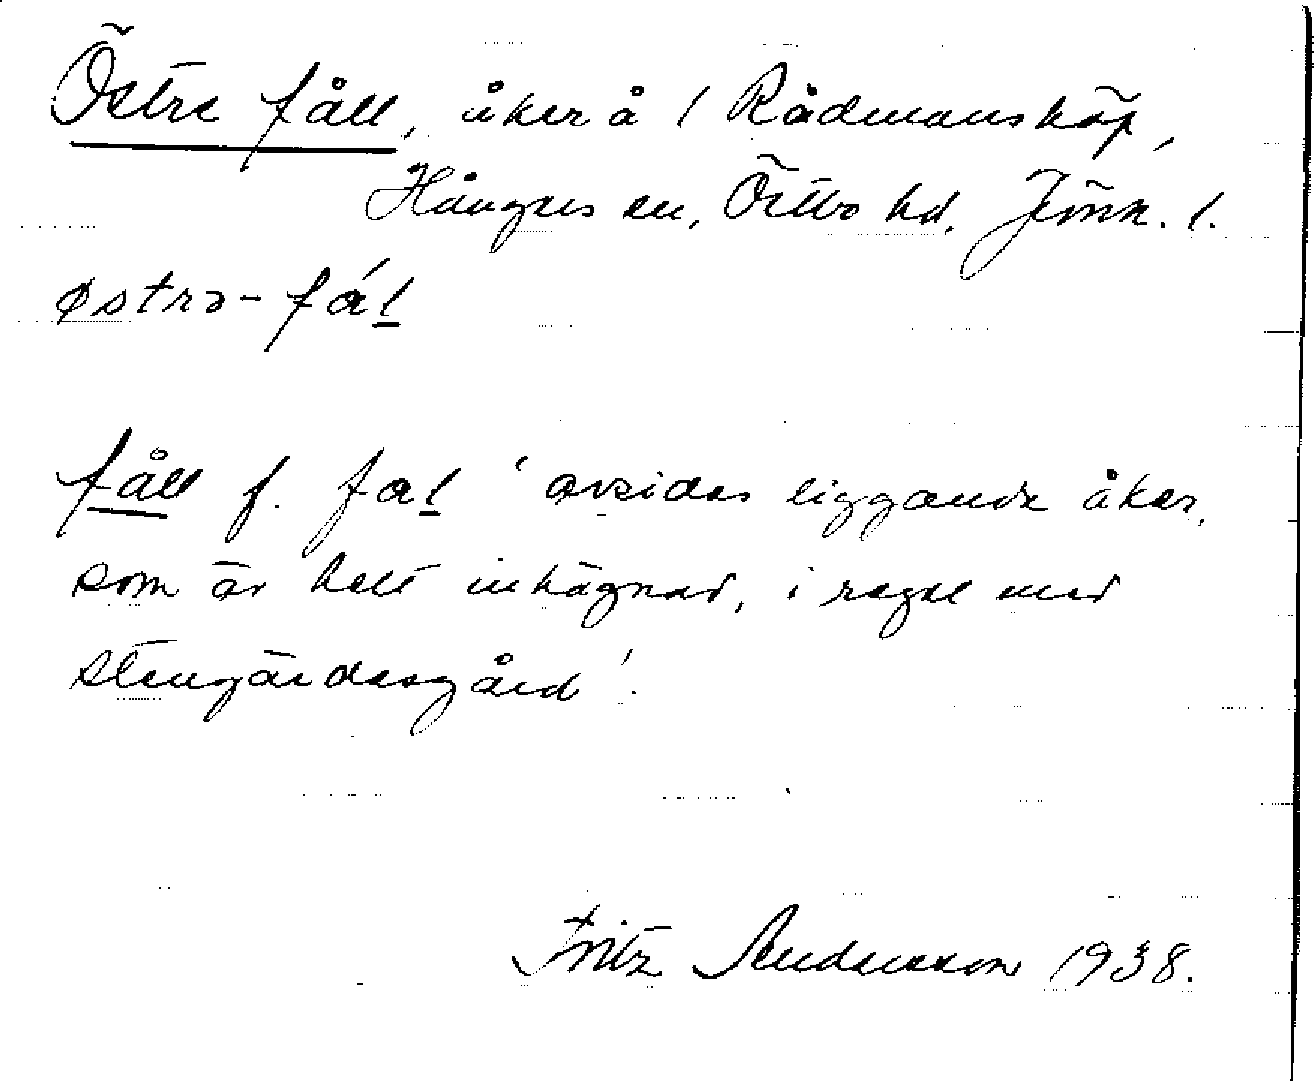 Östre fåll, åker å 1 Rådmansköp,
Hångers sn, Östbo hd, Jönk. l.
østrə-fál
fåll f. fal 'avsides liggande åker,
som är helt inhägnad, i regel med
stengärdesgård'.
Fritz Andersson 1938.